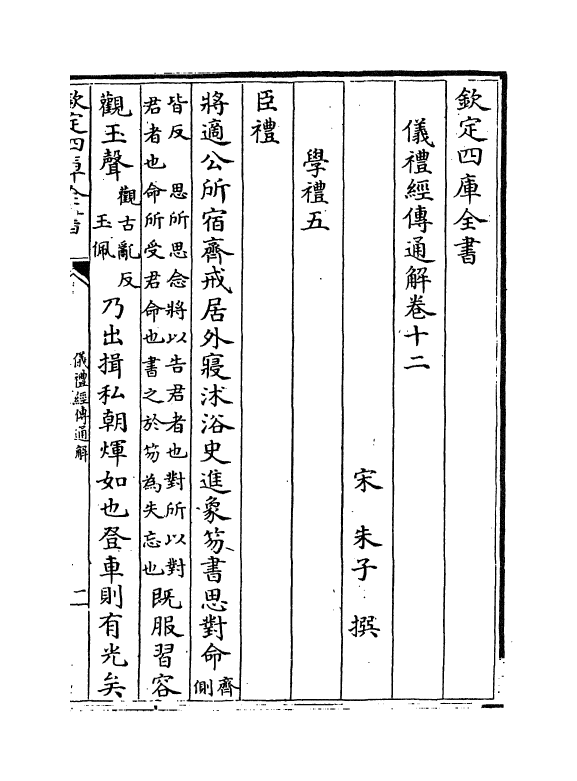 欽定四庫全書
儀禮經傳通解卷十二
宋 朱子 撰
學禮五
臣禮
將適公所宿齊戒居外寢沐浴史進象笏書思對命齊側
皆反 思所思念將以告君者也對所以對
君者也命所受君命也書之於笏為失忘也既服習容
觀玉聲觀古亂反玉佩乃出揖私朝煇如也登車則有光矣
欽定四庫全書
儀禮經傳通解